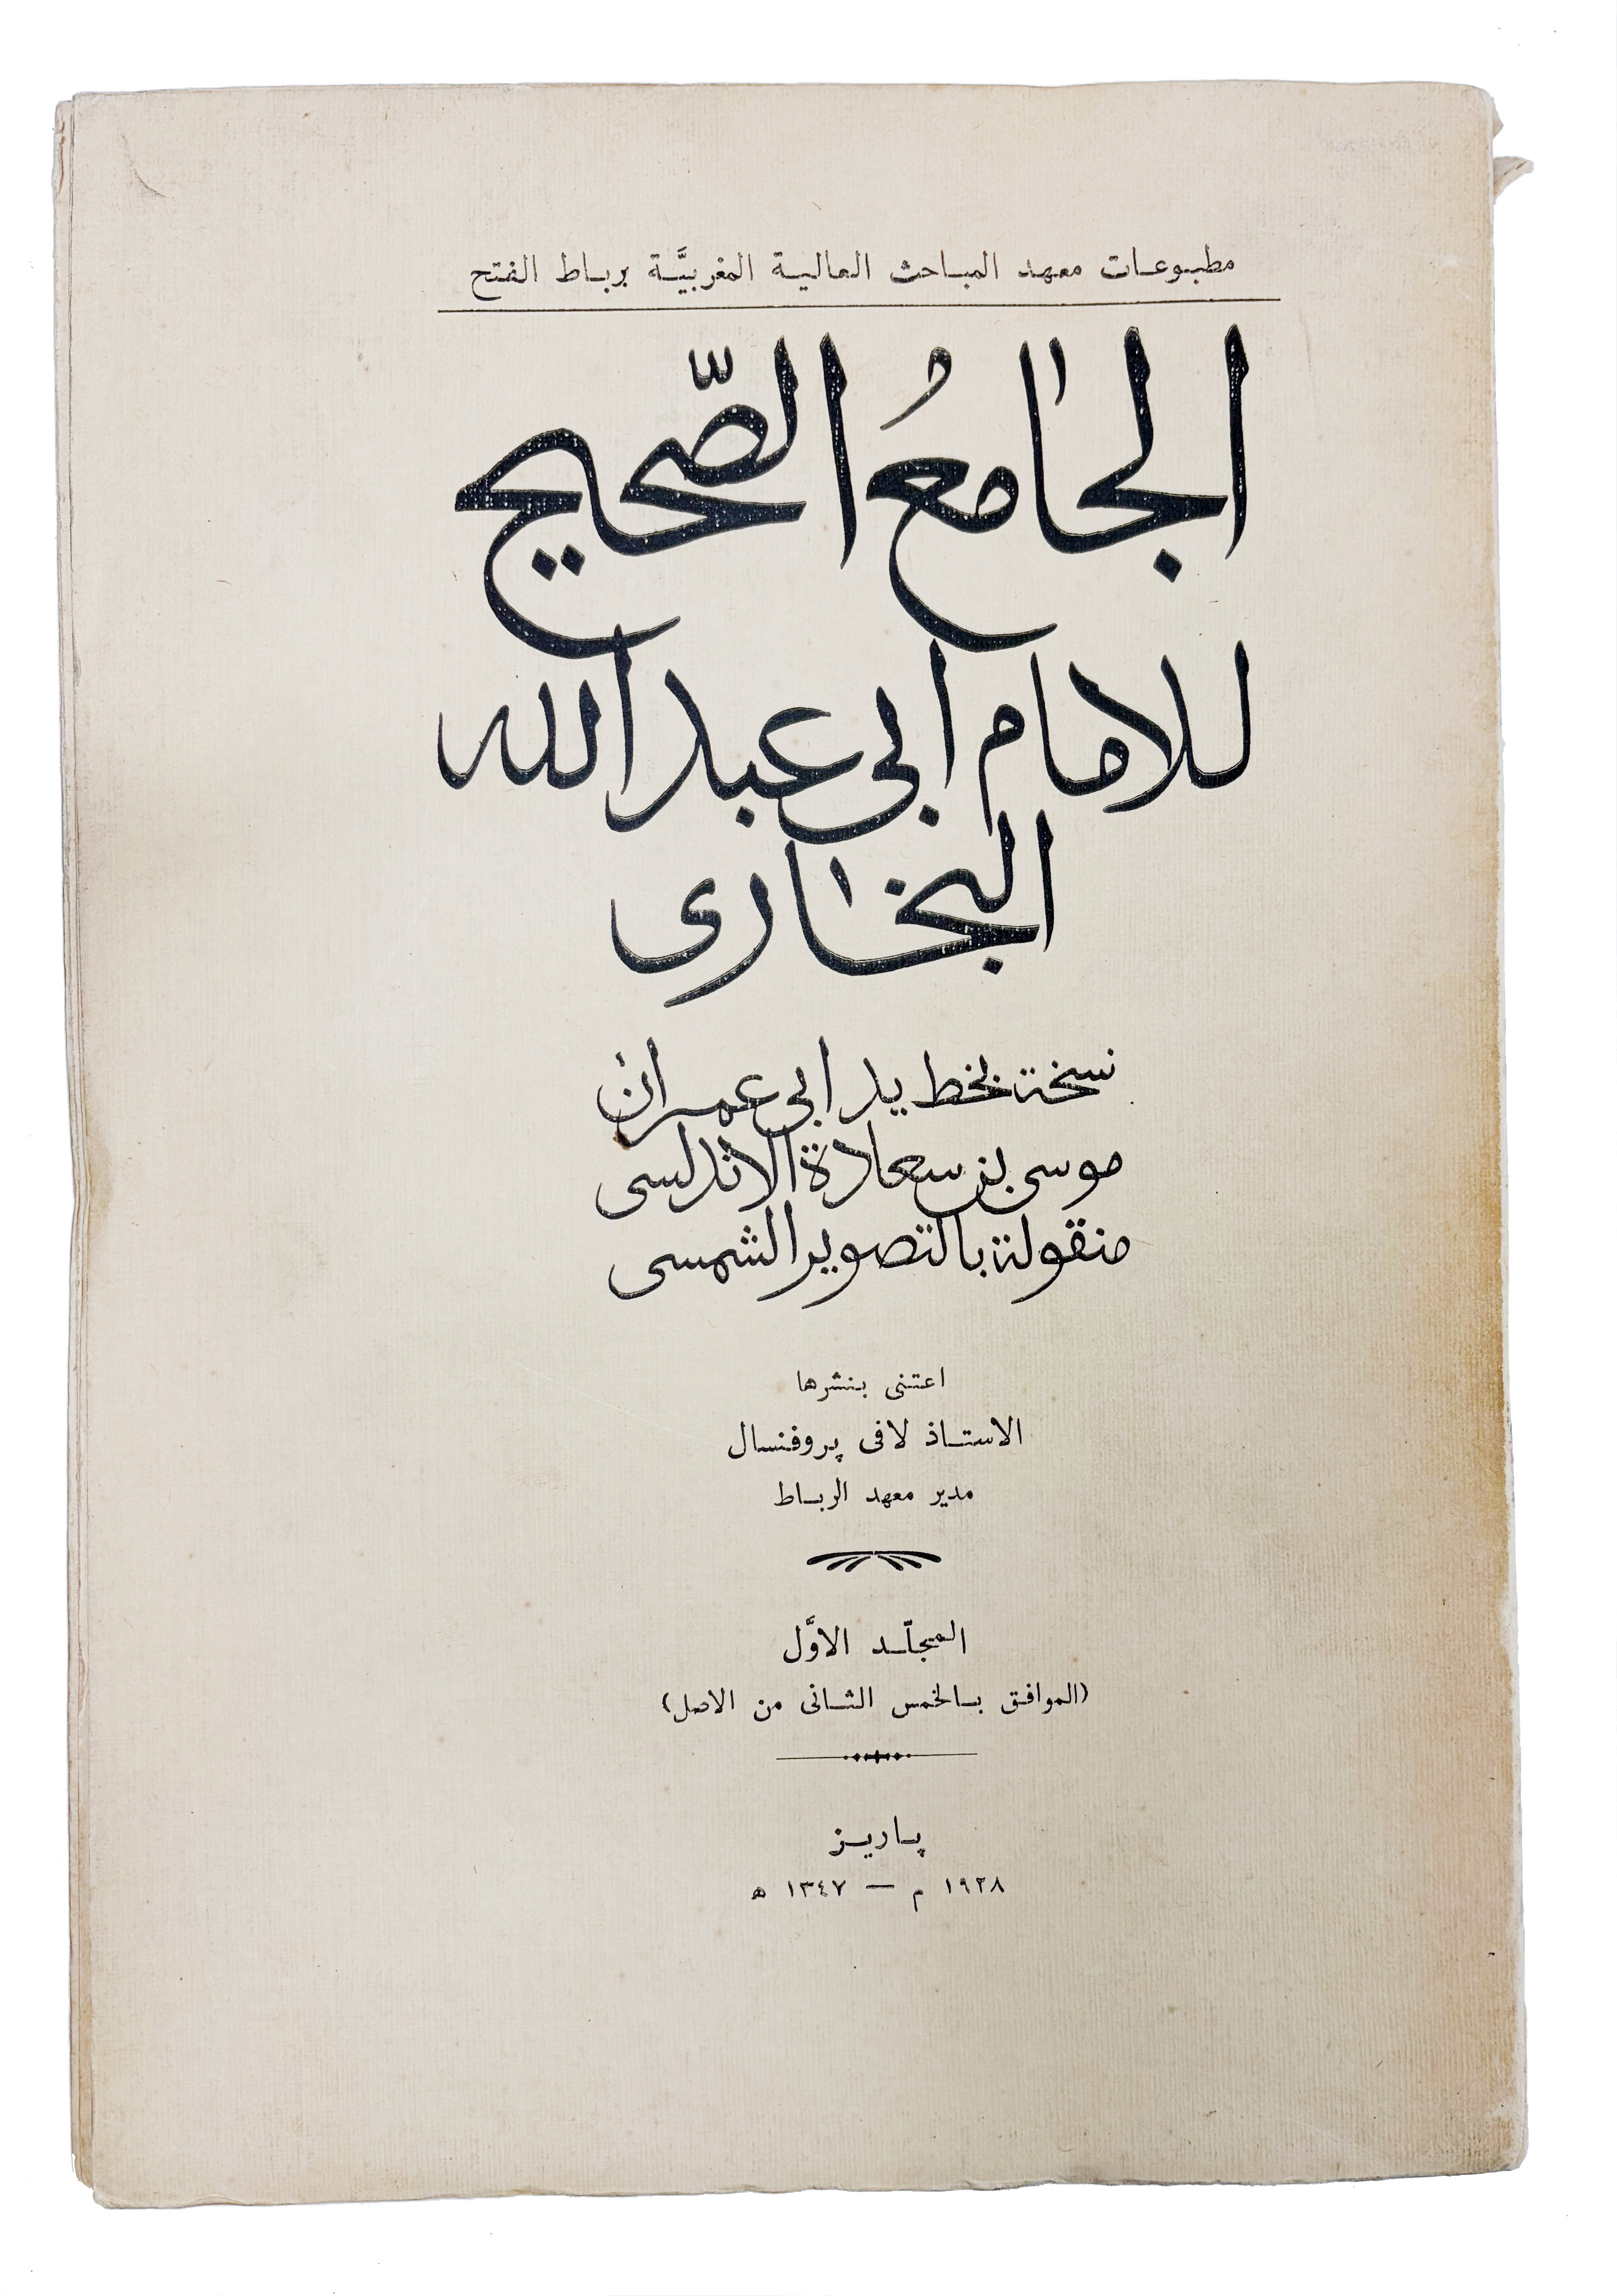 مطبوعات معهد المباحث العالية المغربيَّة برباط الفتح
الجامعُ الصّحيح
للامام ابي عبد الله
البخارى
نسخة بخط يد ابي عمران
موسى بن سعادة الاندلسى
منقولة بالتصوير الشمسى
اعتنى بنشرها
الاستاذ لافى پروفنسال
مدير معهد الرباط
المجلّد الاوَّل
(الموافق بالخمس الثانى من الاصل)
پاريز
١٩٢٨ م — ١٣٤٧ ه